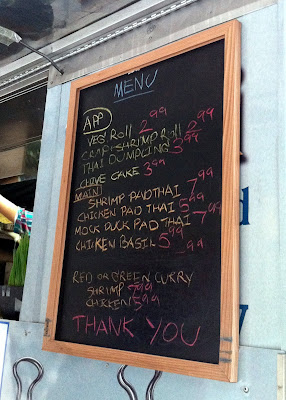 MENU
APP
VEG ROLL 2.99
CRAB/SHRIMP ROLL 2.99
THAI DUMPLING 3.99
CHIVE CAKE 3.99
MAIN
SHRIMP PAD THAI 7.99
CHICKEN PAD THAI 5.99
MOCK DUCK PAD THAI 7.99
CHICKEN BASIL 5.99
.99
RED OR GREEN CURRY
SHRIMP 7.99
CHICKEN 5.99
THANK YOU